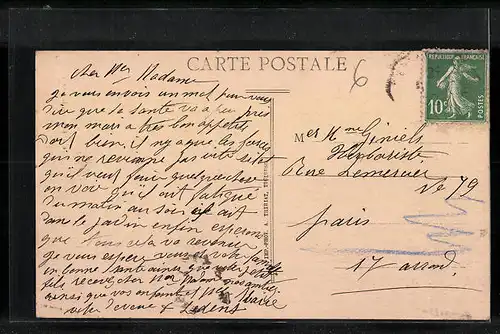 CARTE POSTALE
6
REPUBLIQUE FRANÇAISE
10c
POSTES
cher Mr Madame
je vous envois un mot pour vous
dire que la sante va a peu près
mon mari a très bon appétit
dort bien, il n'y a que des forces
qui ne revienne pas vite sitot
qu'il veut faire quelque chose
on voit qu'il est fatigué
du matin au soir il est
dans le jardin enfin esperons
que tous cela va revenir
je vous espere vous et votre famille
en bonne santé ainsi que votre petit
fils recevez cher Mr Madame
ainsi que vos enfants
votre
Mer Mme Giniels
Herboriste
Rue Lemercier
No 79
Paris
17 arrond.